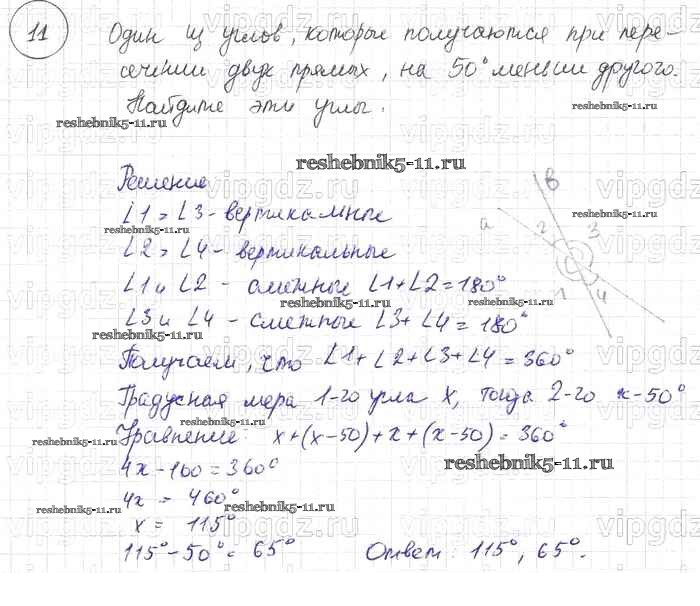 11 Один из углов, которые получаются при пере-
сечении двух прямых, на 50° меньше другого.
Найдите эти углы.
reshebnik5-11.ru
reshebnik5-11.ru
reshebnik5-11.ru
Решение
∠1 = ∠3 - вертикальные
reshebnik5-11.ru
reshebnik5-11.ru
∠2 = ∠4 - вертикальные
∠1 и ∠2 - смежные ∠1+∠2=180°
reshebnik5-11.ru
reshebnik5-11.ru
∠3 и ∠4 - смежные ∠3+∠4=180°
reshebnik5-11.ru
a
в
2
3
1
4
Получаем, что ∠1+∠2+∠3+∠4=360°
Градусная мера 1-го угла х, тогда 2-го х-50°
reshebnik5-11.ru
Уравнение: х+(х-50)+х+(х-50)=360°
reshebnik5-11.ru
4х-100=360°
reshebnik5-11.ru
4х = 460°
reshebnik5-11.ru
reshebnik5-11.ru
х = 115°
115°-50°= 65° Ответ: 115°, 65°.
vipgdz.ru